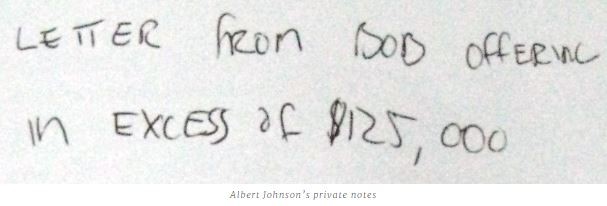 LETTER from BOB OFFERING
IN EXCESS OF $125,000
Albert Johnson's private notes